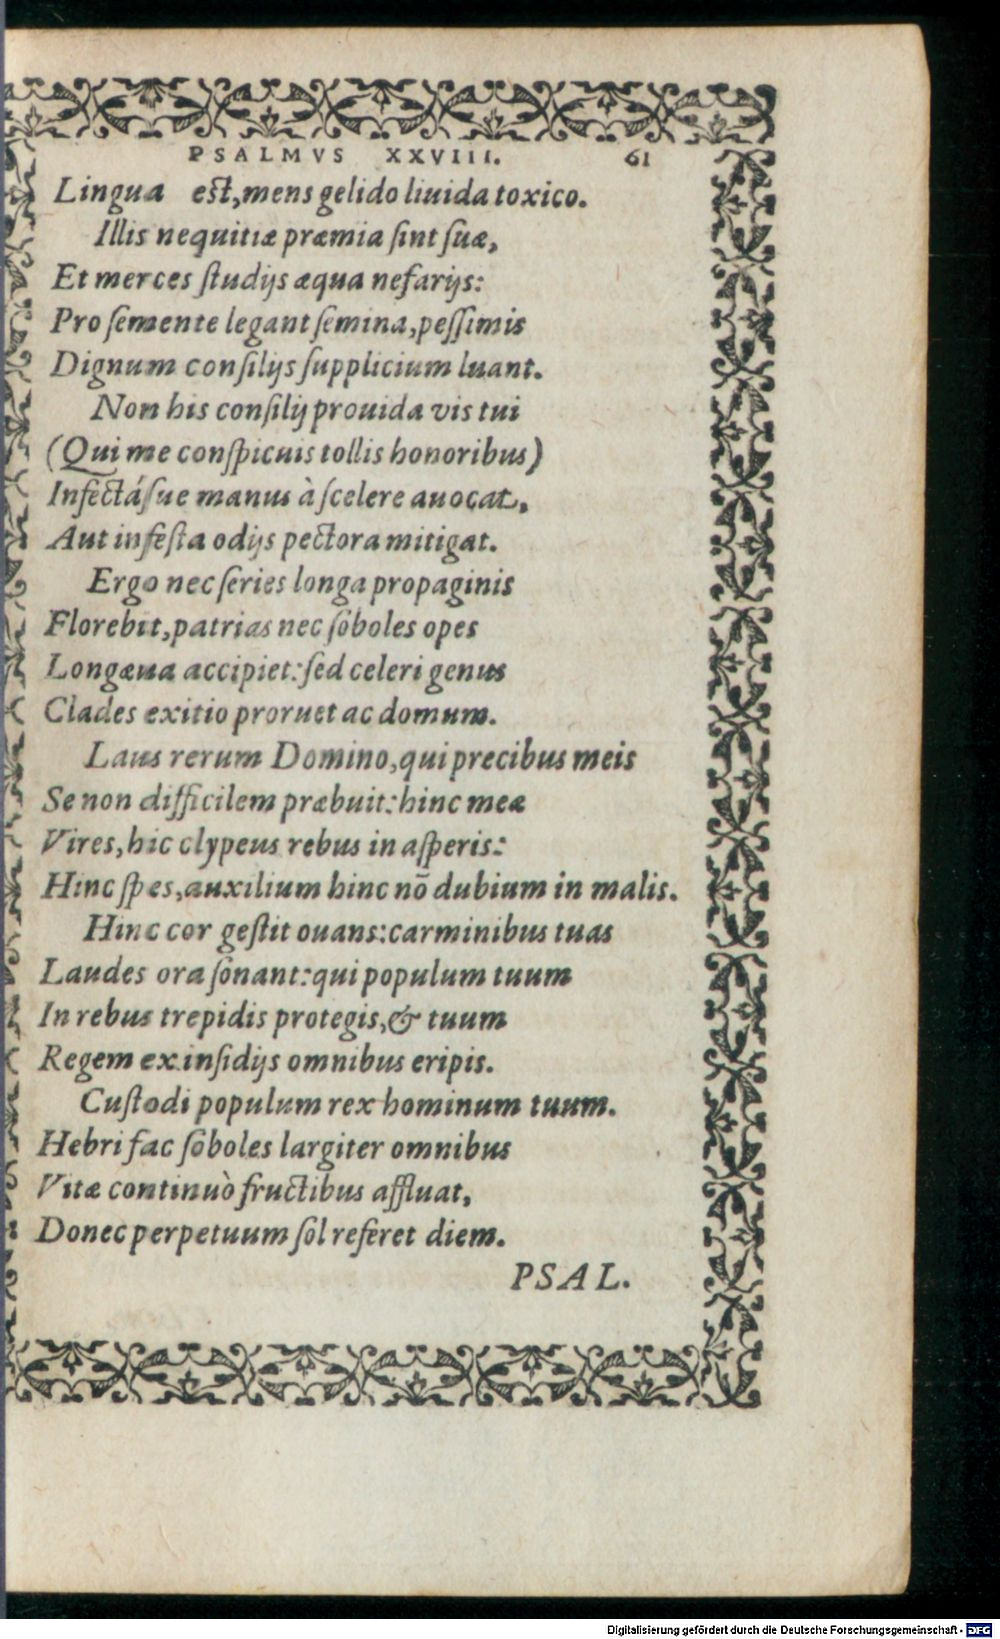 PSALMVS XXVIII. 61
Lingua est, mens gelido liuida toxico.
Illis nequitiæ præmia ſint ſuæ,
Et merces ſtudijs æqua nefarijs:
Pro ſemente legant ſemina, peſſimis
Dignum conſilijs ſupplicium luant.
Non his conſilij prouida vis tui
(Qui me conſpicuis tollis honoribus)
Infectáſue manus à ſcelere auocat,
Aut infeſta odijs pectora mitigat.
Ergo nec ſeries longa propaginis
Florebit, patrias nec ſoboles opes
Longæua accipiet: ſed celeri genus
Clades exitio proruet ac domum.
Laus rerum Domino, qui precibus meis
Se non difficilem præbuit: hinc meæ
Vires, hic clypeus rebus in aſperis:
Hinc ſpes, auxilium hinc nō dubium in malis.
Hinc cor geſtit ouans: carminibus tuas
Laudes ora ſonant: qui populum tuum
In rebus trepidis protegis, & tuum
Regem ex inſidijs omnibus eripis.
Cuſtodi populum rex hominum tuum.
Hebri fac ſoboles largiter omnibus
Vitæ continuò fructibus affluat,
Donec perpetuum ſol referet diem.
PSAL.
Digitalisierung gefördert durch die Deutsche Forschungsgemeinschaft - DFG